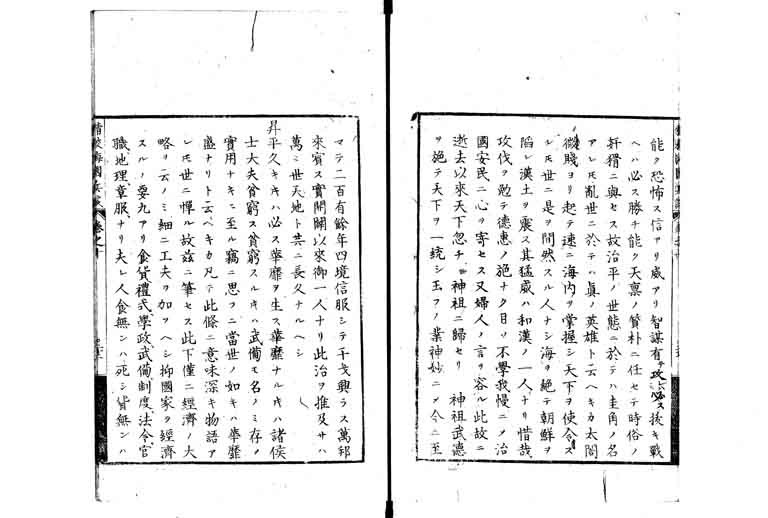 能ク恐怖ス信アリ威アリ智謀有テ攻ムレハ必ス抜キ戦
ヘハ必ス勝チ能ク天禀ノ質朴ニ任セテ時俗ノ
奸猾ニ與セス故治平ノ世態ニ於テハ圭角ノ名
アレ𪜈乱世ニ於テハ真ノ英雄ト云ヘキカ太閤
微賤ヨリ起テ速ニ海内ヲ掌握シ天下ヲ使令ス
レ𪜈世ニ是ヲ間然スル人ナシ海ヲ絶テ朝鮮ヲ
陷レ漢土ヲ震ス其猛威ハ和漢ノ一人ナリ惜哉
攻伐ヲ勉テ德惠ノ施ナク日ヲ不學我慢ニメ治
国安民ニ心ヲ寄セス又婦人ノ言ヲ容ル此故ニ
逝去以來天下忽チ 神祖ニ歸セリ 神祖武德
ヲ施テ天下ヲ一統シ玉フノ業神妙ニメ今ニ至
マテ二百有餘年四境信服シテ干戈興ラス萬邦
來賓ス實開闢以來御一人ナリ此治ヲ推及サハ
萬ミ世天地ト共ニ長久ナルヘシ
昇平久キ𪜈ハ必ス華靡ヲ生ス華靡ナル𪜈ハ諸侯
士大夫貧窮ス貧窮スル𪜈ハ武備モ名ノミ存ノ
實用ナキニ至ル竊ニ思フニ當世ノ如キハ華靡
盛ナリト云ヘキカ凡テ此條ニ意味深キ物語ア
レ𪜈世ニ憚ル故茲ニ筆セス此下僅ニ經濟ノ大
略ヲ云ノミ細ニ工夫ヲ加フヘシ抑國家ヲ經濟
スルノ要九アリ食貨禮式學政武備制度法令官
職地理章服ナリ夫レ人食無ンハ死シ貨無ンハ
精校海國兵談 卷之十